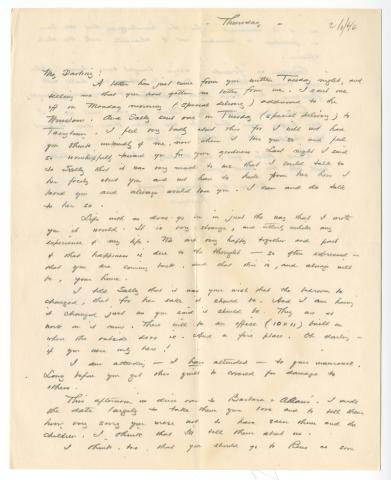 Thursday
2/6/46
My Darling:
A letter has just come from you written Tuesday night, and
telling me that you had gotten no letter from me. I sent one
off on Monday morning (special delivery) addressed to the
Winslow. And Sally sent one on Tuesday (special delivery) to
Tarrytown. I feel very badly about this for I will not have
you think unkindly of me, now when I love you so and feel
so wonderfully toward you for your goodness. Last night I said
to Sally that it was very sweet to me that I could talk to
her freely about you and not have to hide from her how I
loved you and always would love you. I can and do talk
to her so.
Life with us does go on in just the way that I wrote
you it would. It is very strange, and utterly unlike any
experience of my life. We are very happy together and part
of that happiness is due to the thought — so often expressed —
that you are coming back, and that this is, and always will
be, your house.
I told Sally that it was your wish that the bedroom be
changed, that for her sake it should be. And I am having
it changed just as you said it should be. They are at
work on it now. There will be an office (10 x 11) built on
where the outside door is. And a fire place. Oh darling —
if you were only here!
I am attending — I have attended — to your insurance.
Long before you get there you'll be covered for damage to
others.
This afternoon we drive over to Barbara & Alan's. I made
the date largely to take them your love and to tell them
how very sorry you were not to have seen them and the
children. I think that I'll tell them about us.
I think, too, that you should go to Reno as soon